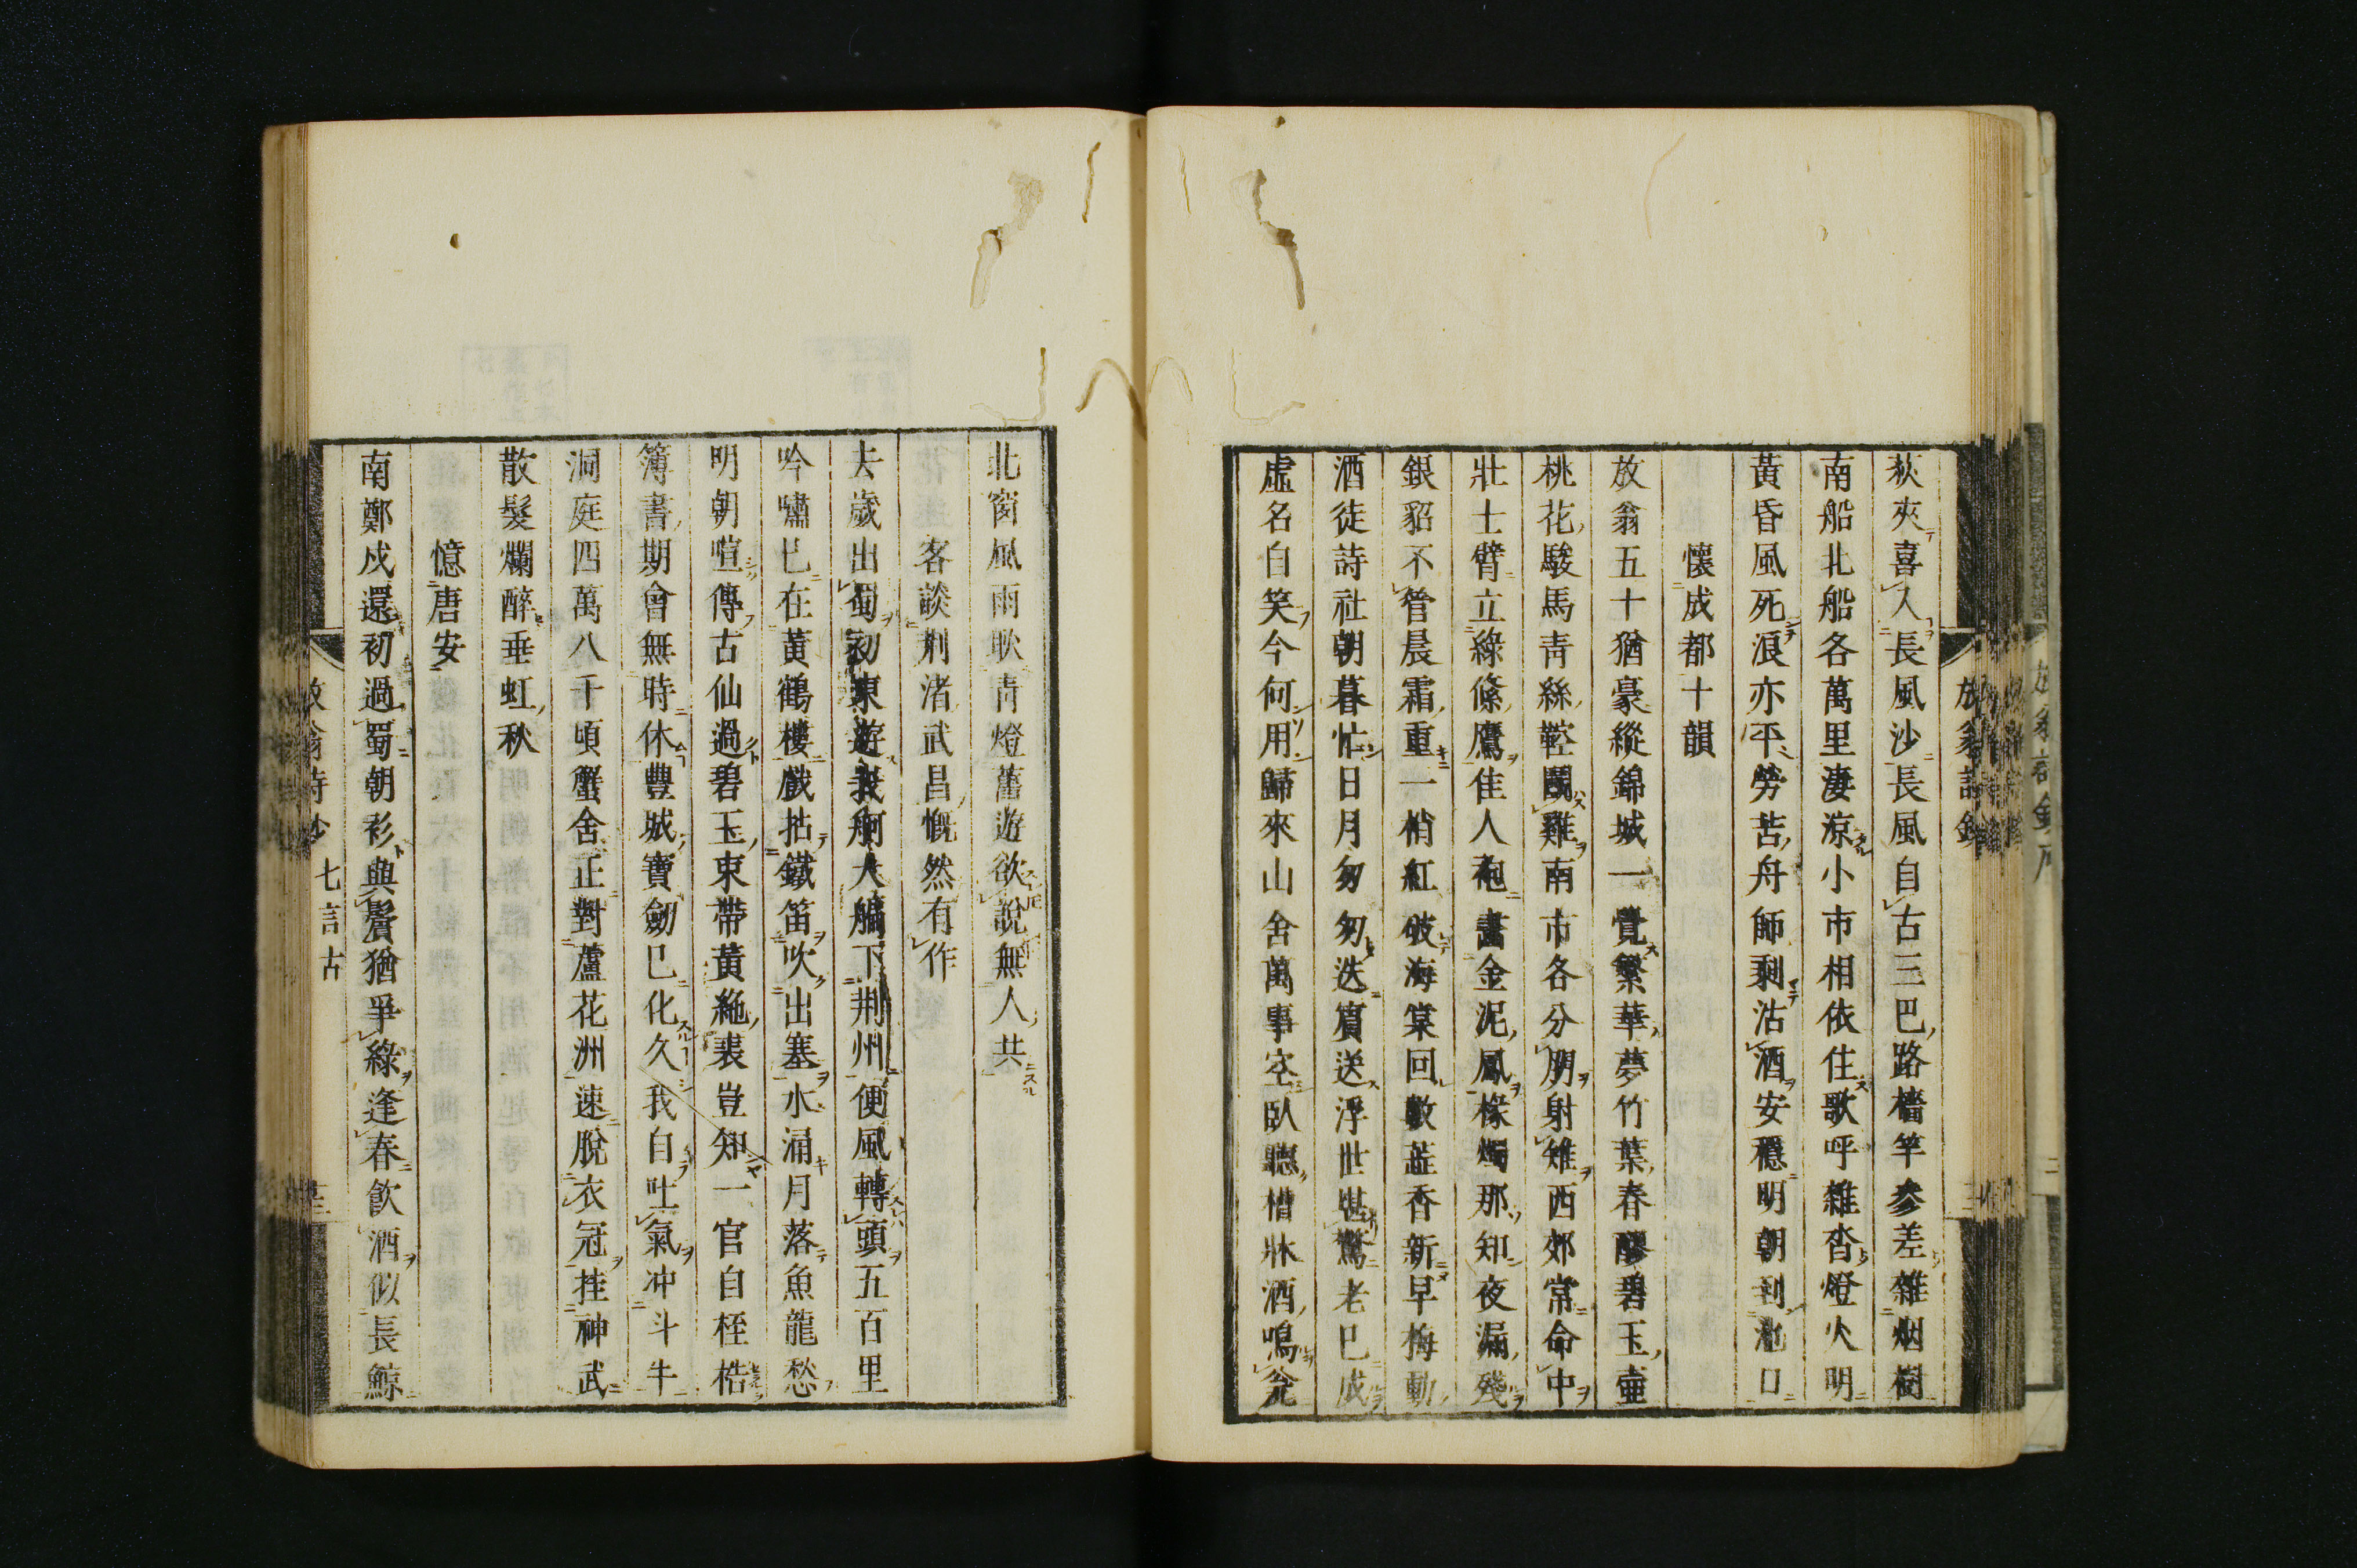 荻夾喜入長風沙長風自古三巴路檣竿參差雜烟樹
南船北船各萬里淒涼小市相依住歌呼雜沓燈火明
黃昏風死浪亦平勞苦舟師剩沽酒安穩明朝到池口
懷成都十韻
放翁五十猶豪縱錦城一覺繁華夢竹葉春醪碧玉壺
桃花駿馬靑絲鞚鬬雞南市各分朋射雉西郊常命中
壯士臂立綠絛鷹佳人袍畫金泥鳳椽燭那知夜漏殘
銀貂不管晨霜重一梢紅破海棠回數蕋香新早梅動
酒徒詩社朝暮忙日月匆匆迭賓送浮世堪驚老已成
虛名自笑今何用歸來山舍萬事空臥聽槽牀酒鳴瓮
北窗風雨耿靑燈舊遊欲說無人共
客談荆渚武昌慨然有作
去歲出蜀初東遊我舸大艑下荆州便風轉頭五百里
吟嘯已在黃鶴樓戲拈鐵笛吹出塞水涌月落魚龍愁
明朝喧傳古仙過碧玉束帶黃絁裘豈知一官自桎梏
簿書期會無時休豐城寶劒已化久我自吐氣冲斗牛
洞庭四萬八千頃蟹舍正對蘆花洲速脫衣冠挂神武
散髮爛醉垂虹秋
憶唐安
南鄭戍還初過蜀朝衫與鬢猶爭綠逢春飮酒似長鯨
放翁詩鈔 七言古